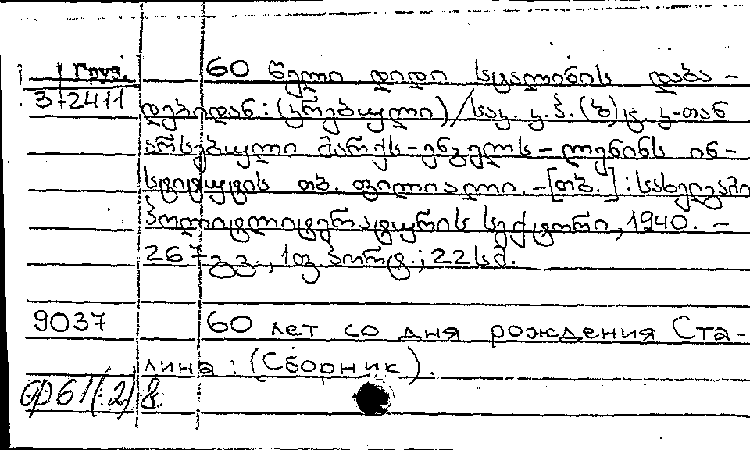 Груз. 60 წელი დიდი სტალინის დაბა-
3/2411 დებიდან : (კრებული) / საკ. კ. პ. (ბ) ც. კ-თან
არსებული მარქს-ენგელს-ლენინს ინ-
სტიტუტის თბ. ფილიალი. - [თბ.] : სახელგამი
პოლიტლიტერატურის სექტორი, 1940. -
267 გვ., 1 ფ. პორტ.; 22 სმ.
9037 60 лет со дня рождения Ста-
лина : (Сборник).
61(2) 8